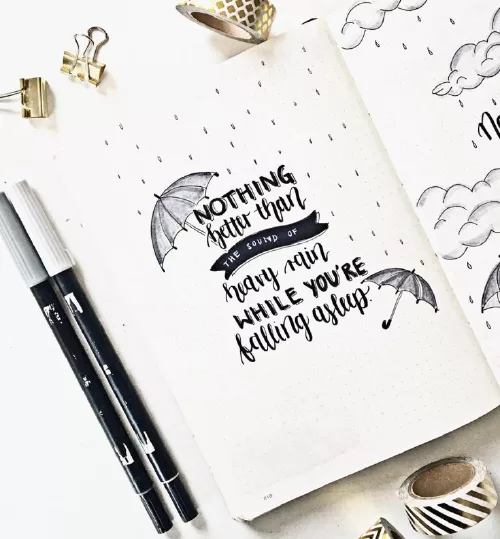 NOTHING
better than
THE SOUND OF
heavy rain
WHILE YOU'RE
falling asleep.